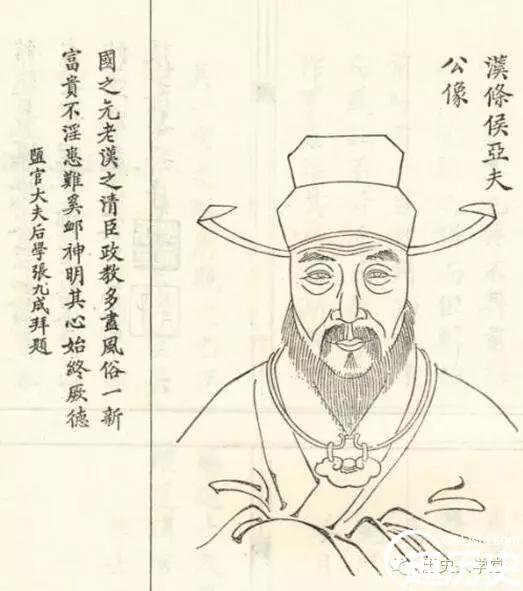 漢條侯亞夫
公像
國之元老漢之清臣政教多盡風俗一新
富貴不淫患難奚卹神明其心始終厥德
鹽官大夫后學張九成拜題
趣历史